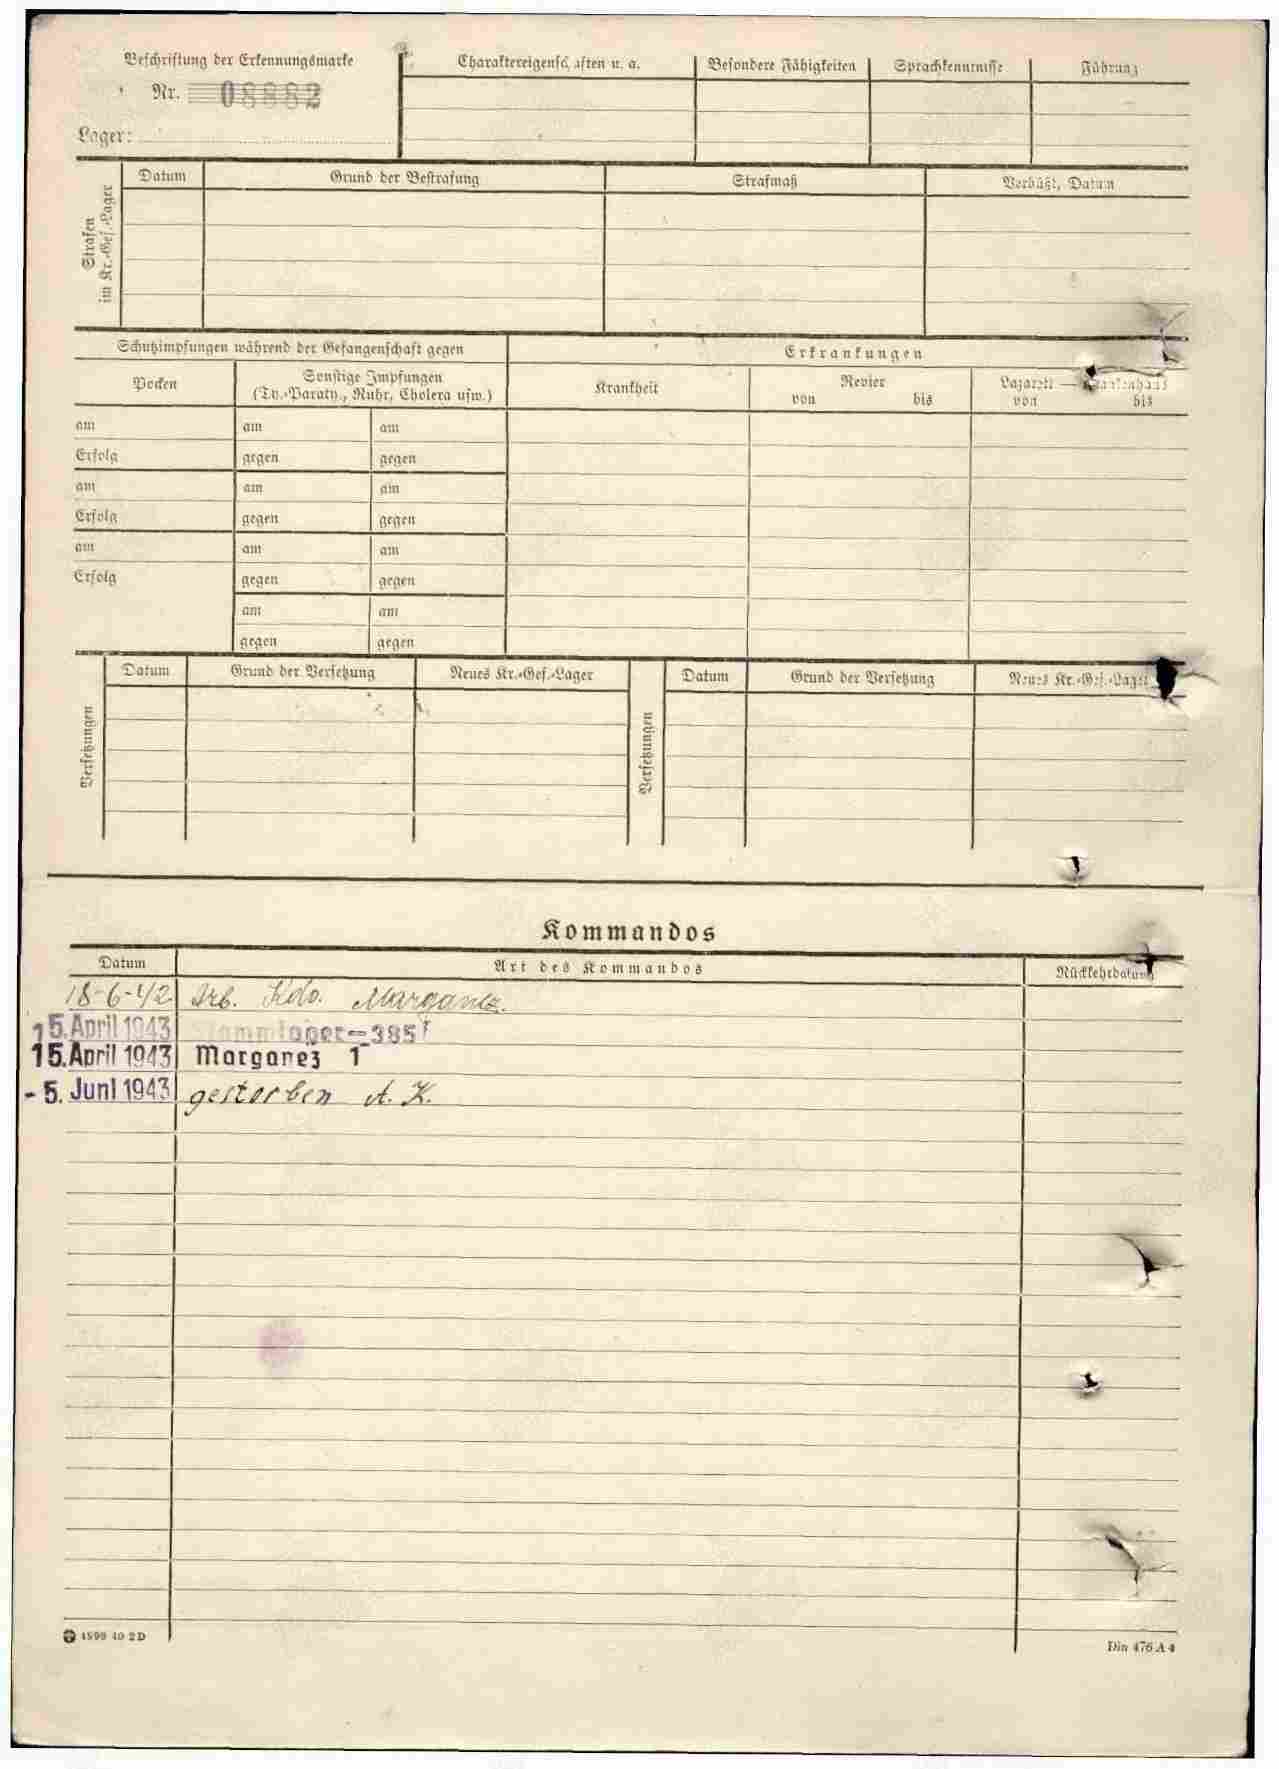 Beschriftung der Erkennungsmarke
Nr. 08882
Lager:
Charaktereigenschaften u. a.
Besondere Fähigkeiten
Sprachkenntnisse
Führung
Strafen im Kr.-Gef.-Lager
Datum
Grund der Bestrafung
Strafmaß
Verbüßt, Datum
Schutzimpfungen während der Gefangenschaft gegen
Erkrankungen
Pocken
Sonstige Impfungen
(Ty.-Paraty., Ruhr, Cholera usw.)
Krankheit
Revier
von bis
Lazarett — Krankenhaus
von bis
am am am
Erfolg gegen gegen
am am am
Erfolg gegen gegen
am am am
Erfolg gegen gegen
am am
gegen gegen
Versetzungen
Datum
Grund der Versetzung
Neues Kr.-Gef.-Lager
Versetzungen
Datum
Grund der Versetzung
Neues Kr.-Gef.-Lager
Kommandos
Datum Art des Kommandos Rückkehrdatum
18-6-42 Arb. Kdo. Marganez.
15. April 1943 Stammlager-385
15. April 1943 Marganez 1
- 5. Juni 1943 gestorben A. K.
4899 40 2D
Din 476 A 4